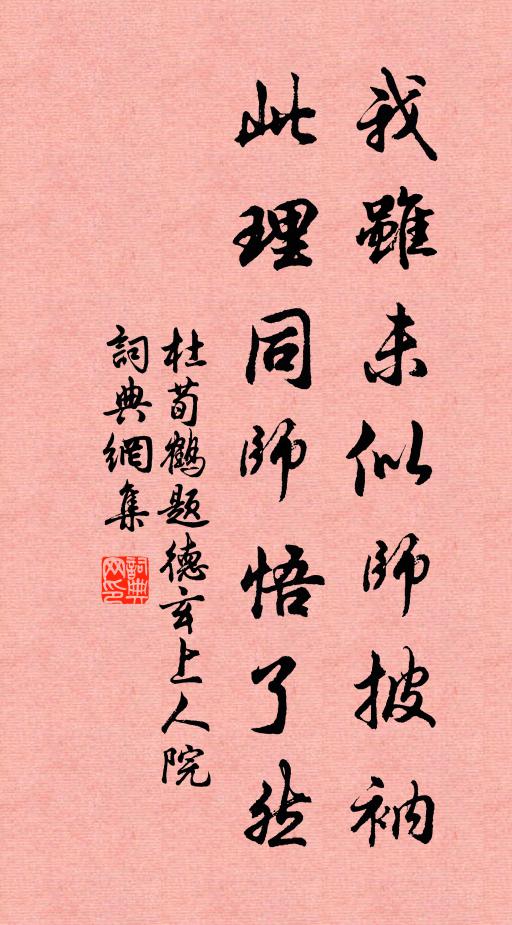 我雖未似師披衲
此理同師悟了然
杜荀鶴題德玄上人院
詞典網集
詞典网印